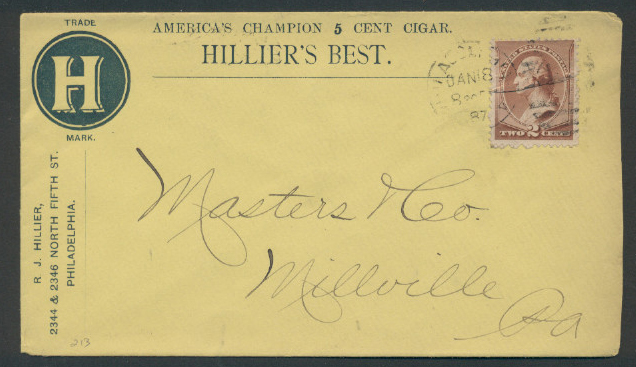 TRADE
H
MARK.
AMERICA'S CHAMPION 5 CENT CIGAR.
HILLIER'S BEST.
R. J. HILLIER,
2344 & 2346 NORTH FIFTH ST.
PHILADELPHIA.
JAN 18
87
UNITED STATES POSTAGE
TWO 2 CENTS
Masters & Co.
Millville
Pa
213